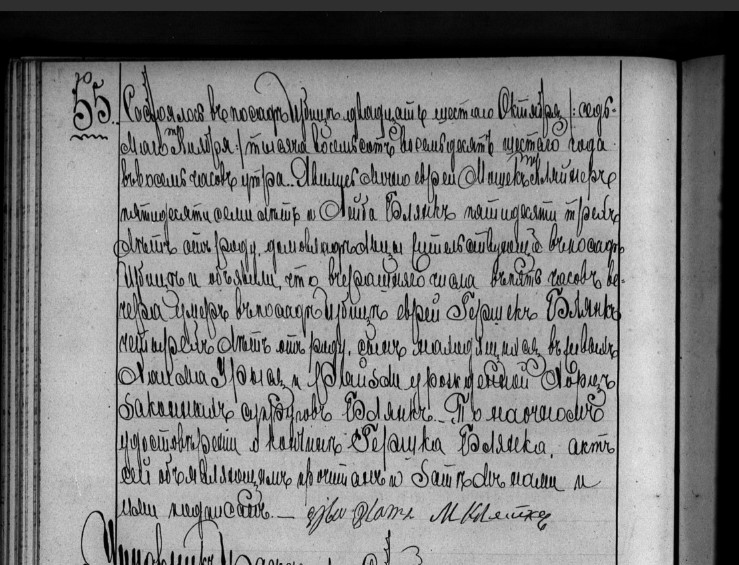 55.
Состоялось въ посадѣ Избицѣ двадцать шестаго Октября /: седь-
маго Ноября :/ тысяча восемьсотъ восемьдесятъ шестаго года
въ восемь часовъ утра. Явились лично евреи Мошекъ Кляйнеръ
пятидесяти семи лѣтъ и Лейба Блянкъ пятидесяти трехъ
лѣтъ отъ роду, домовладѣльцы жительствующіе въ посадѣ
Избицѣ и объявили, что вчерашняго числа въ пять часовъ ве-
чера умеръ въ посадѣ Избицѣ еврей Гершекъ Блянкъ
четырехъ лѣтъ отъ роду, сынъ находящихся въ живыхъ
и урожденной
законныхъ супруговъ Блянкъ. По наочномъ
удостовѣреніи о кончинѣ Гершка Блянка, актъ
сей объявляющимъ прочитанъ и затѣмъ нами и
ими подписанъ. —